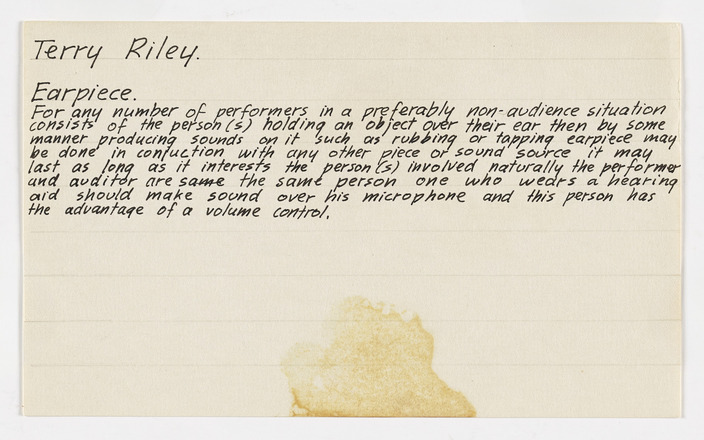 Terry Riley.
Earpiece.
For any number of performers in a preferably non-audience situation
consists of the person(s) holding an object over their ear then by some
manner producing sounds on it such as rubbing or tapping earpiece may
be done in conjuction with any other piece or sound source it may
last as long as it interests the person(s) involved naturally the performer
and auditor are same the same person one who wears a hearing
aid should make sound over his microphone and this person has
the advantage of a volume control.